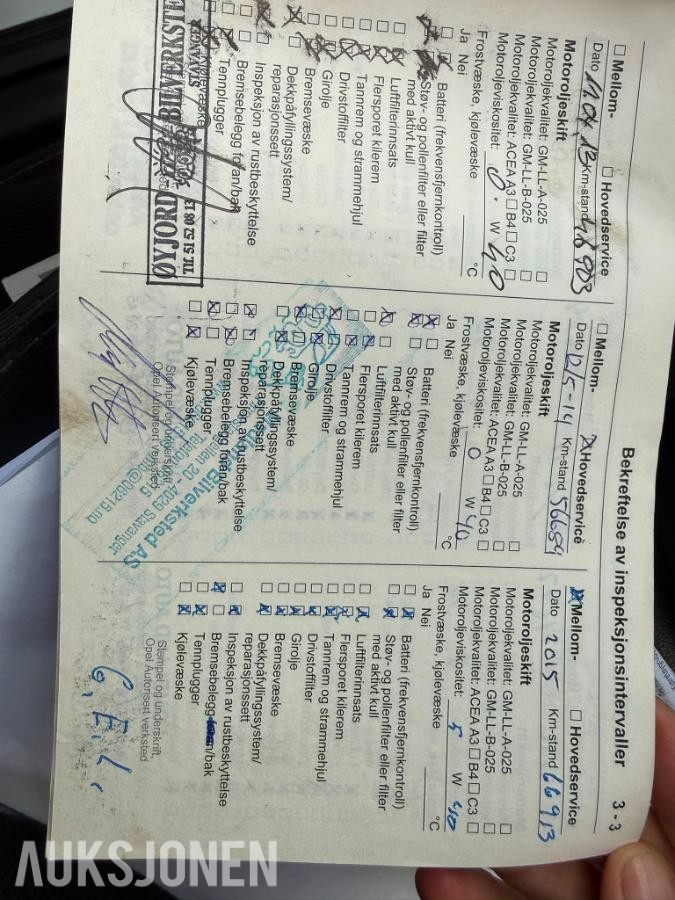 Bekreftelse av inspeksjonsintervaller 3 - 3
Mellom-
Hovedservice
Dato 11.04.13 Km-stand 48903
Motoroljeskift
Motoroljekvalitet: GM-LL-A-025
Motoroljekvalitet: GM-LL-B-025
Motoroljekvalitet: ACEA A3 B4 C3
Motoroljeviskositet: 0 . W 40
Frostvæske, kjølevæske °C
Ja Nei
Batteri (frekvensfjernkontroll)
Støv- og pollenfilter eller filter
med aktivt kull
Luftfilterinnsats
Flersporet kilerem
Tannrem og strammehjul
Drivstoffilter
Girolje
Bremsevæske
Dekkpåfyllingssystem/
reparasjonssett
Inspeksjon av rustbeskyttelse
Bremsebelegg foran/bak
Tennplugger
Kjølevæske
ØYJORD
BILVERKSTED
STAVANGER
Mellom-
Hovedservice
Dato 12/5-14 Km-stand 56659
Motoroljeskift
Motoroljekvalitet: GM-LL-A-025
Motoroljekvalitet: GM-LL-B-025
Motoroljekvalitet: ACEA A3 B4 C3
Motoroljeviskositet: 0 W 40
Frostvæske, kjølevæske °C
Ja Nei
Batteri (frekvensfjernkontroll)
Støv- og pollenfilter eller filter
med aktivt kull
Luftfilterinnsats
Flersporet kilerem
Tannrem og strammehjul
Drivstoffilter
Girolje
Bremsevæske
Dekkpåfyllingssystem/
reparasjonssett
Inspeksjon av rustbeskyttelse
Bremsebelegg foran/bak
Tennplugger
Kjølevæske
Stempel og underskrift
Opel Autorisert verksted
Bilverksted AS
20, 4029 Stavanger
Mellom-
Hovedservice
Dato 2015 Km-stand 66913
Motoroljeskift
Motoroljekvalitet: GM-LL-A-025
Motoroljekvalitet: GM-LL-B-025
Motoroljekvalitet: ACEA A3 B4 C3
Motoroljeviskositet: 5 W 40
Frostvæske, kjølevæske °C
Ja Nei
Batteri (frekvensfjernkontroll)
Støv- og pollenfilter eller filter
med aktivt kull
Luftfilterinnsats
Flersporet kilerem
Tannrem og strammehjul
Drivstoffilter
Girolje
Bremsevæske
Dekkpåfyllingssystem/
reparasjonssett
Inspeksjon av rustbeskyttelse
Bremsebelegg foran/bak
Tennplugger
Kjølevæske
Stempel og underskrift
Opel Autorisert verksted
AUKSJONEN